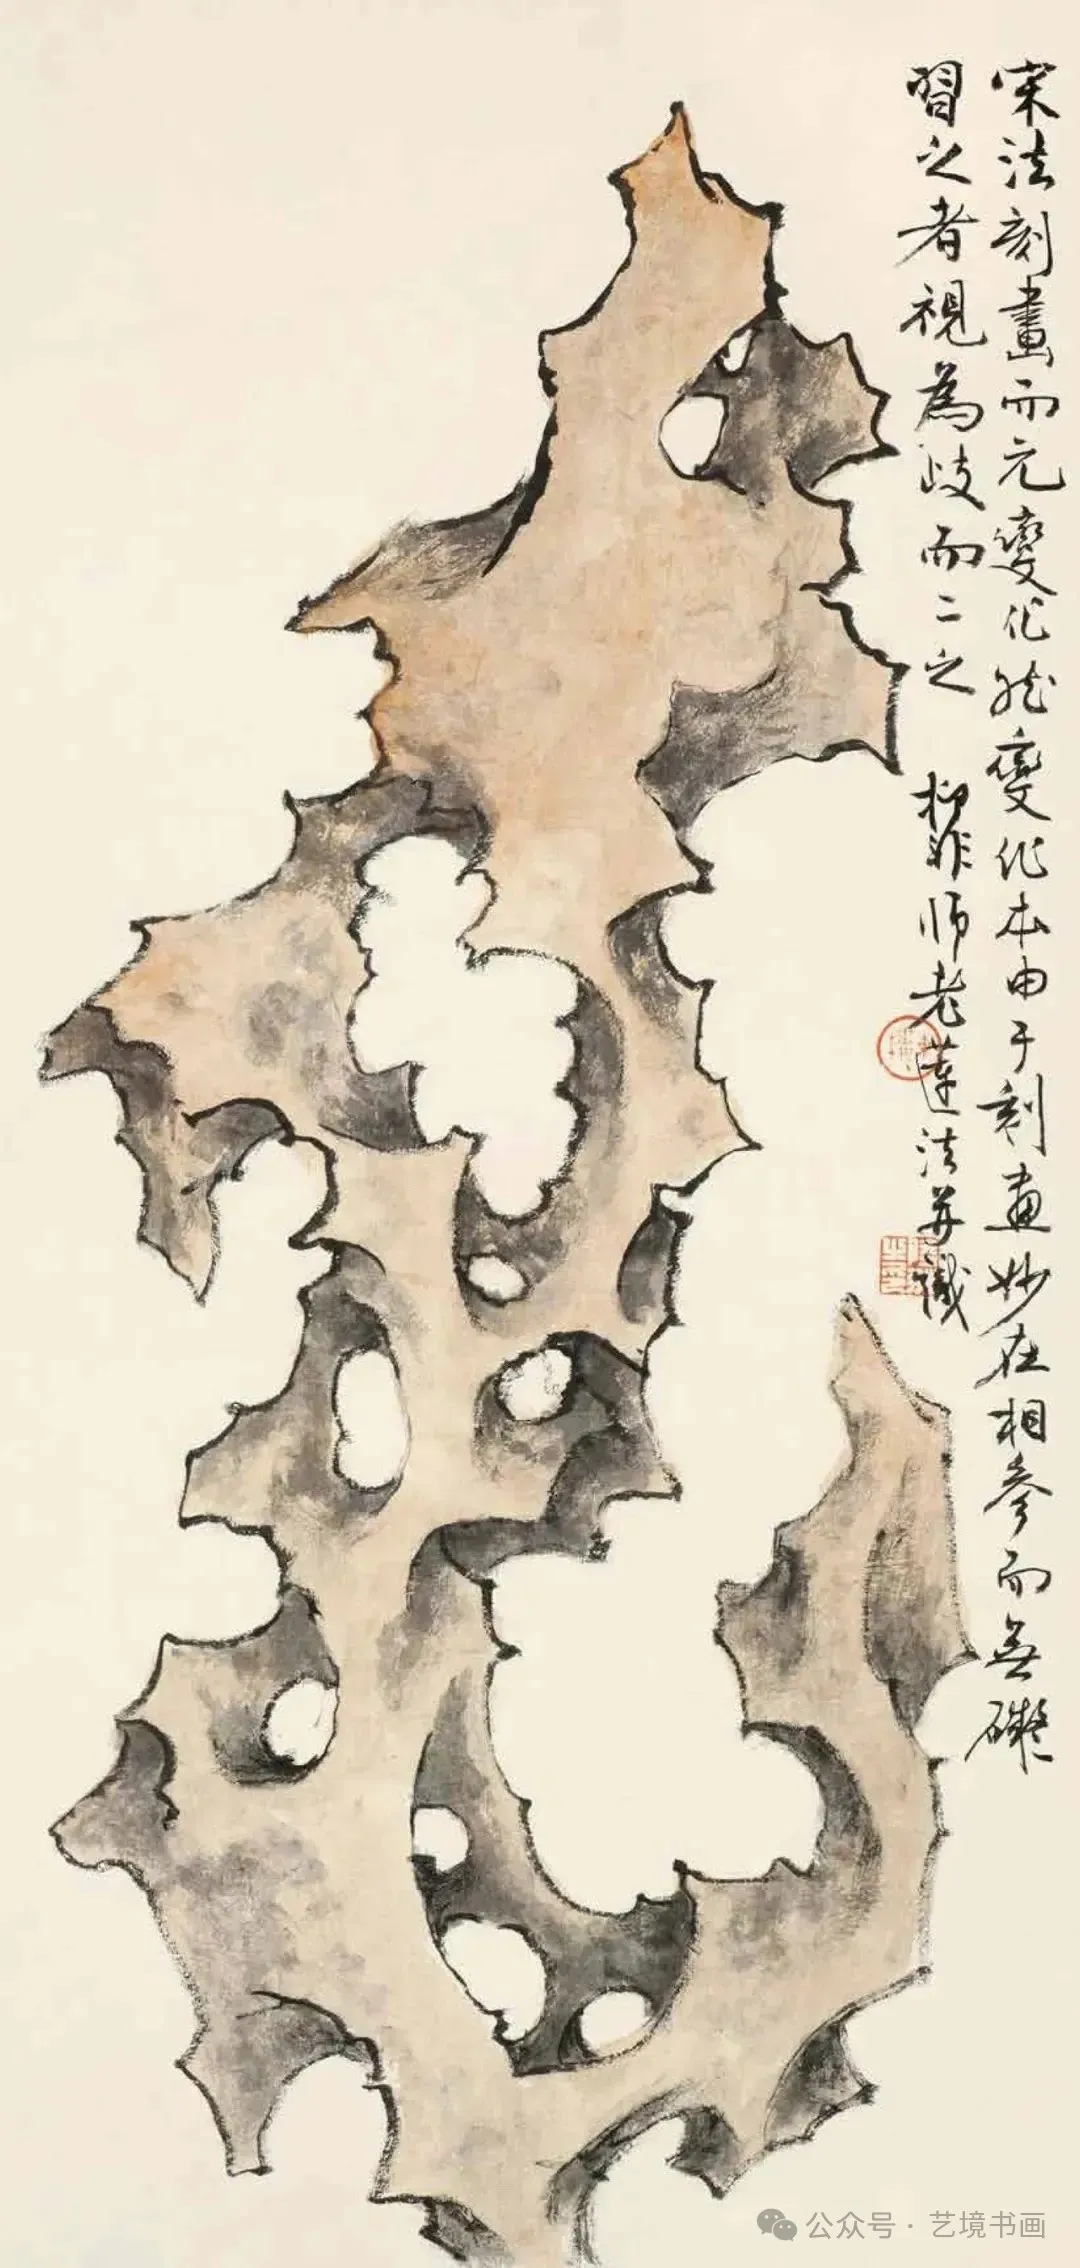 宋法刻畫而元變化然變化本由于刻畫妙在相參而無礙
習之者視為歧而二之 柳非師老蓮法并識
公众号·艺境书画